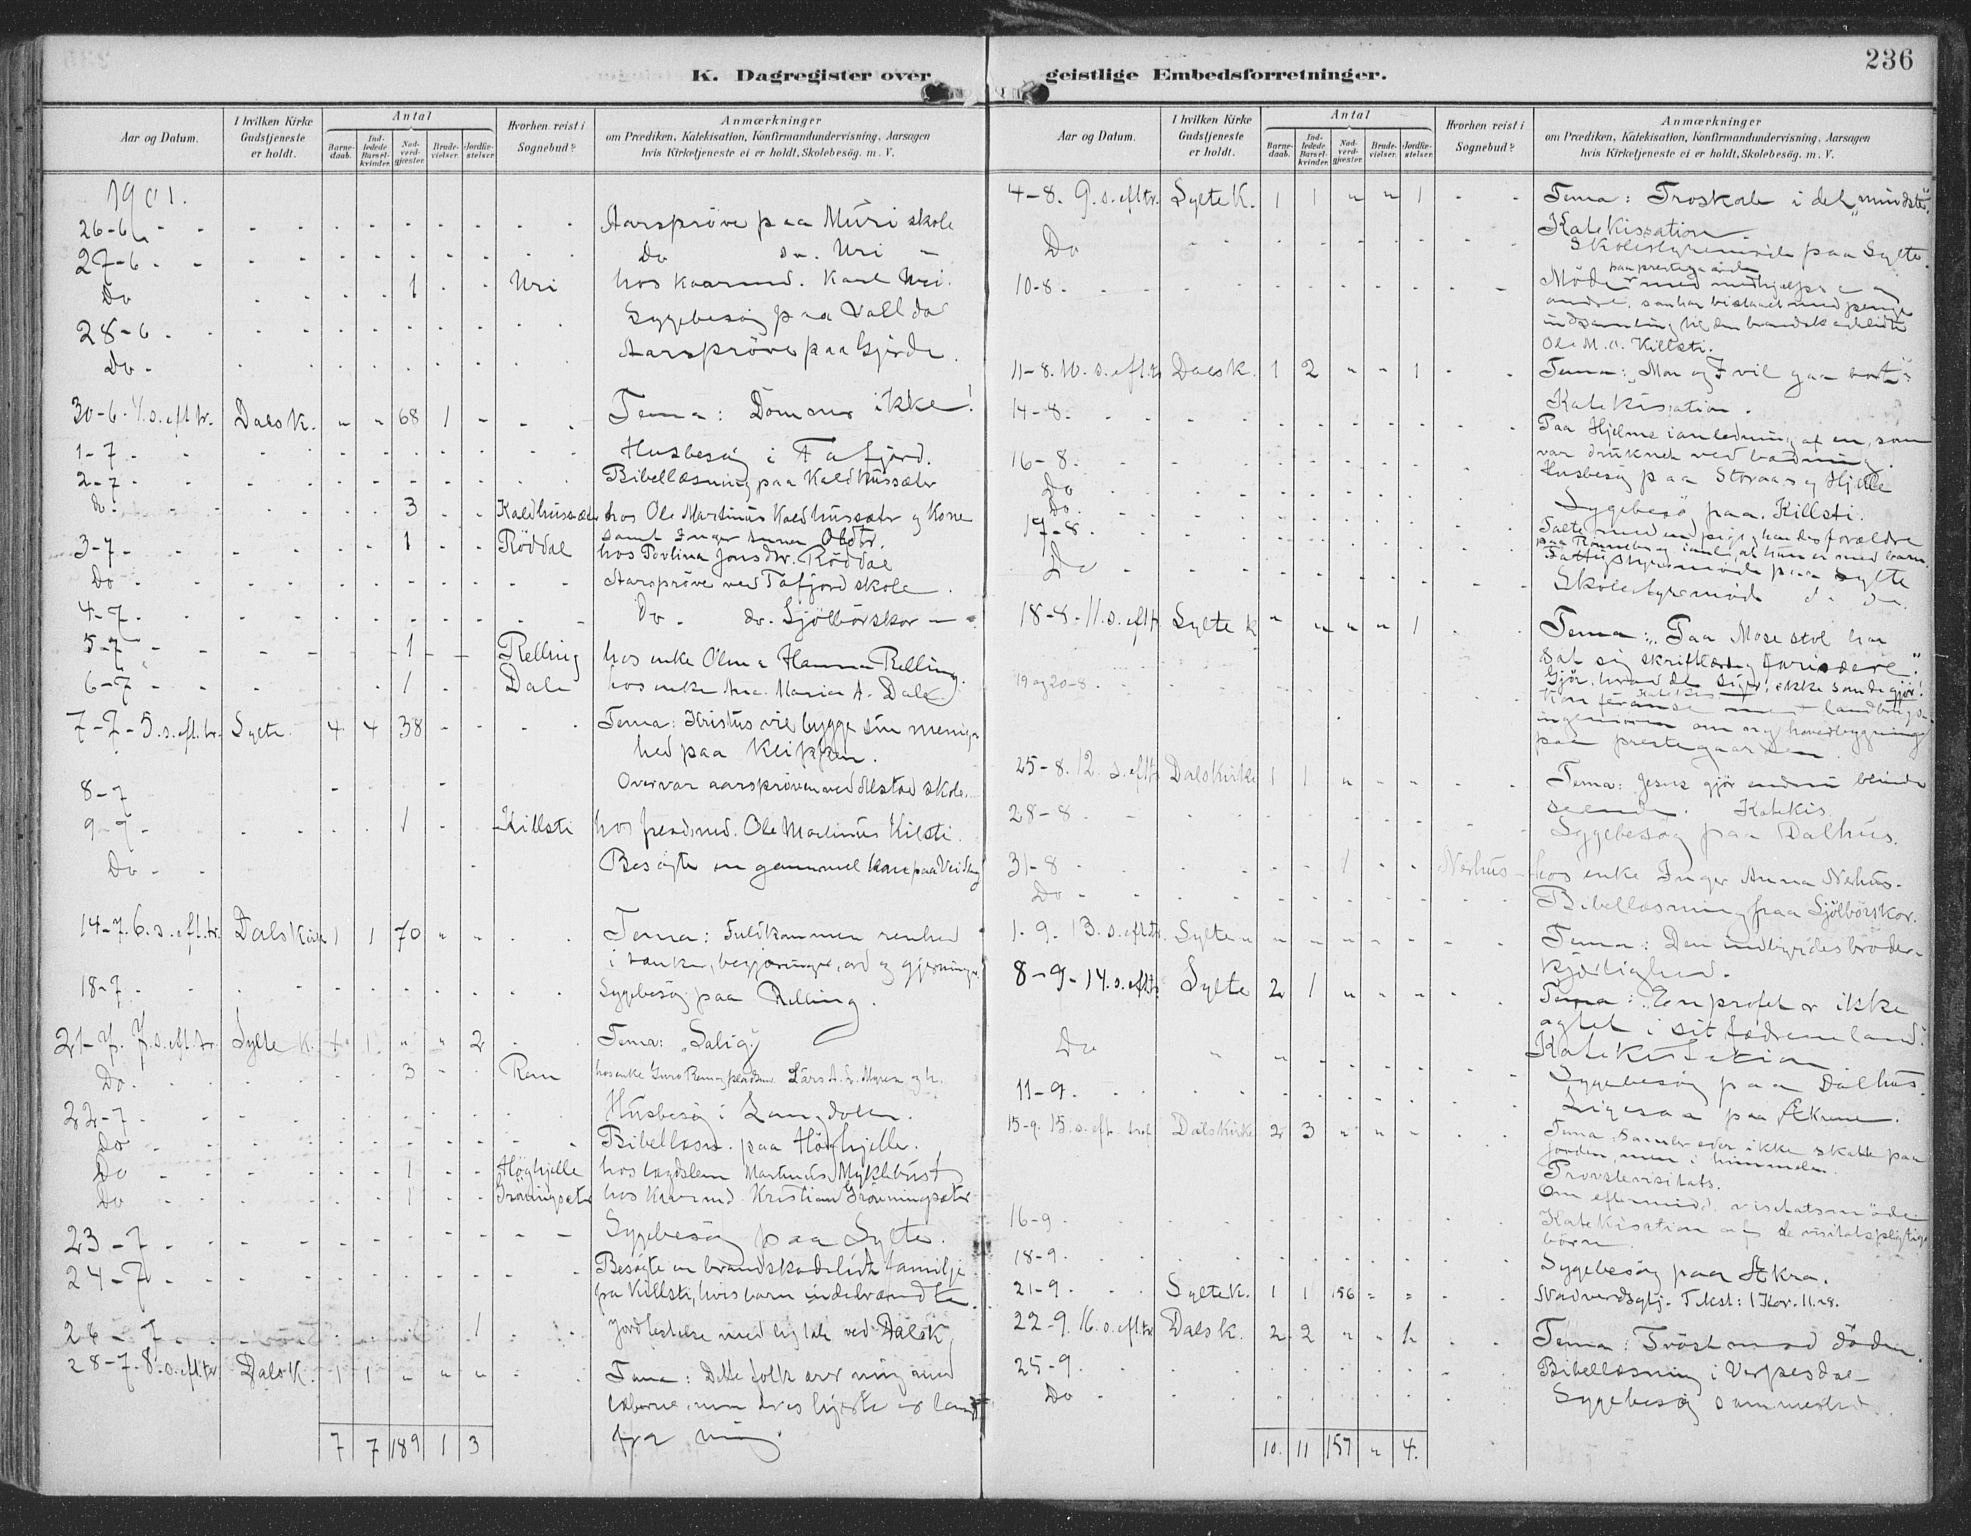 236
K. Dagregister over geistlige Embedsforretninger.
Aar og Datum. I hvilken Kirke Gudstjeneste er holdt. Antal Barnedaab. Indledede Barselkvinder. Nadverdgjæster. Brudevielser. Jordfæstelser. Hvorhen reist i Sognebud? Anmærkninger om Prædiken, Katekisation, Konfirmandundervisning, Aarsagen hvis Kirketjeneste ei er holdt, Skolebesøg. m. V.
1901.
26-6 Aarsprøve paa Muri skole
27-6 Do do. Uri
Do 1 Uri hos kaarmd. Karl Uri.
28-6 Sygebesøg paa Valldal
Do Aarsprøve paa Gjerde.
30-6. 4. s. eft tr. Dals K. " " 68 1 - Tema: Dømmer ikke!
1-7 Husbesøg i Tafjord.
2-7 Bibellæsning paa Kaldhussæter
Do 3 Kaldhussæter hos Ole Martinus Kaldhussæter og Kone
samt Inger Anna Olsdtr.
3-7 1 Røddal hos Povlina Jonsdtr. Røddal
Do Aarsprøve ved Tafjord skole.
4-7 Do. do. Sjølbørskor
5-7 1 Relling hos enke Olina Hanna Relling.
6-7 1 Dale hos enke Ane Maria A. Dale
7-7-5. s. eft. tr. Sylte 4 4 38 Tema: Kristus vil bygge sin menig-
hed paa Klippen.
8-7 Overvar aarsprøven ved Alstad skole.
9-7 1 Killsti hos Ole Martinus Kilsti.
Do Besøgte en gammel kone paa
14-7. 6. s. eft. tr. Dals Kirke 1 1 70 " " Tema: Fuldkommen renhed
i tanker, begjæringer, ord og gjerninger.
18-7 Sygebesøg paa Relling.
21-7. 7. s. eft tr. Sylte K. 1 1 " " 2 Tema: "Salig"
Do. 3 Rem hos enke Guro Rem
22-7 Husbesøg i Langdalen.
Do Bibellæsn. paa Høghjelle.
Do 1 Høghjelle hos lægdslem Martinus Myklebust
Do 1 Grønningsæter hos Kaarmd. Kristian Grønningsæter
23-7 Sygebesøg paa Sylte.
24-7 Besøgte en brandskadelidt familje
på Killsti, hvis barn indebrændte.
26-7 1 Jordfæstelse med ligtale ved Dalsk.
28-7-8. s. eft tr Dals K. 1 1 " " " Tema: Dette folk ærer mig med
læberne, men dets hjerte er langt
fra mig.
7 7 189 1 3
Aar og Datum. I hvilken Kirke Gudstjeneste er holdt. Antal Barnedaab. Indledede Barselkvinder. Nadverdgjæster. Brudevielser. Jordfæstelser. Hvorhen reist i Sognebud? Anmærkninger om Prædiken, Katekisation, Konfirmandundervisning, Aarsagen hvis Kirketjeneste ei er holdt, Skolebesøg. m. V.
4-8. 9. s. eft tr. Sylte K. 1 1 " " 1 Tema: Troskab i det "mindste".
Katekisation
Do Skolestyremøde paa Sylte.
10-8 Møde med medhjælpere og
andre, som har bistaaet med penge
indsamling til den brandskadelidte
Ole M. O. Killsti.
11-8. 10. s. eft. tr Dals K. 1 2 " " 1 Tema: "Mon og I vil gaa bort"
Katekisation.
14-8. Paa Hjelme i anledning af en, som
var druknet ved badning.
16-8. Husbesøg paa Storaas og Hjelle
Do Sygebesø paa Killsti.
Do. Talte med en pige og hendes forældre
17-8.
Do Skolestyremøde do do.
18-8. 11. s. eft tr Sylte K " " " " 1 Tema: "Paa Mose stol har
sat sig skriftlærde og farisæere."
Gjør, hvad de siger, ikke som de gjør!
19 og 20-8 Konferanse med landbrugs-
ingeniøren om ny hovedbygning
paa prestegaarden
25-8. 12. s. eft tr Dalskirke 1 1 " " " Tema: Jesus gjør endnu blinde
seende. Katekis.
28-8 Sygebesøg paa Dalhus.
31-8 1 Nerhus hos enke Inger Anna Nerhus.
Do Bibellæsning paa Sjølbørskor.
1. 9. 13. s. eft tr. Sylte " " " " " Tema: Den indbyrdes broder-
kjærlighed.
8-9-14. s. eft tr. Sylte 2 1 " " " Tema: "En profet er ikke
agtet i sit fædreneland."
Do Katekisation
11-9. Sygebesøg paa Dalhus
Ligesaa paa Ækrene.
15-9. 15. s. eft. tref Dalskirke 2 3 " " " Tema: Samler eder ikke skatte paa
jorden, men i himmelen.
Provstevisitats.
Om eftermidd. visitatsmøde
16-9 Katekisation af de visitatspligtige
børn.
18-9. Sygebesøg paa Ækra.
21-9. Sylte K. 1 1 156 " " Nadverdsgtj. Tekst: 1 Kor. 11.28.
22-9. 16. s. eft tr Dals K. 2 2 " " 1 Tema: Trøst mod døden.
25-9. Bibellæsning i Verpesdal
Do Sygebesøg sammesteds
10. 11 157 " 4.